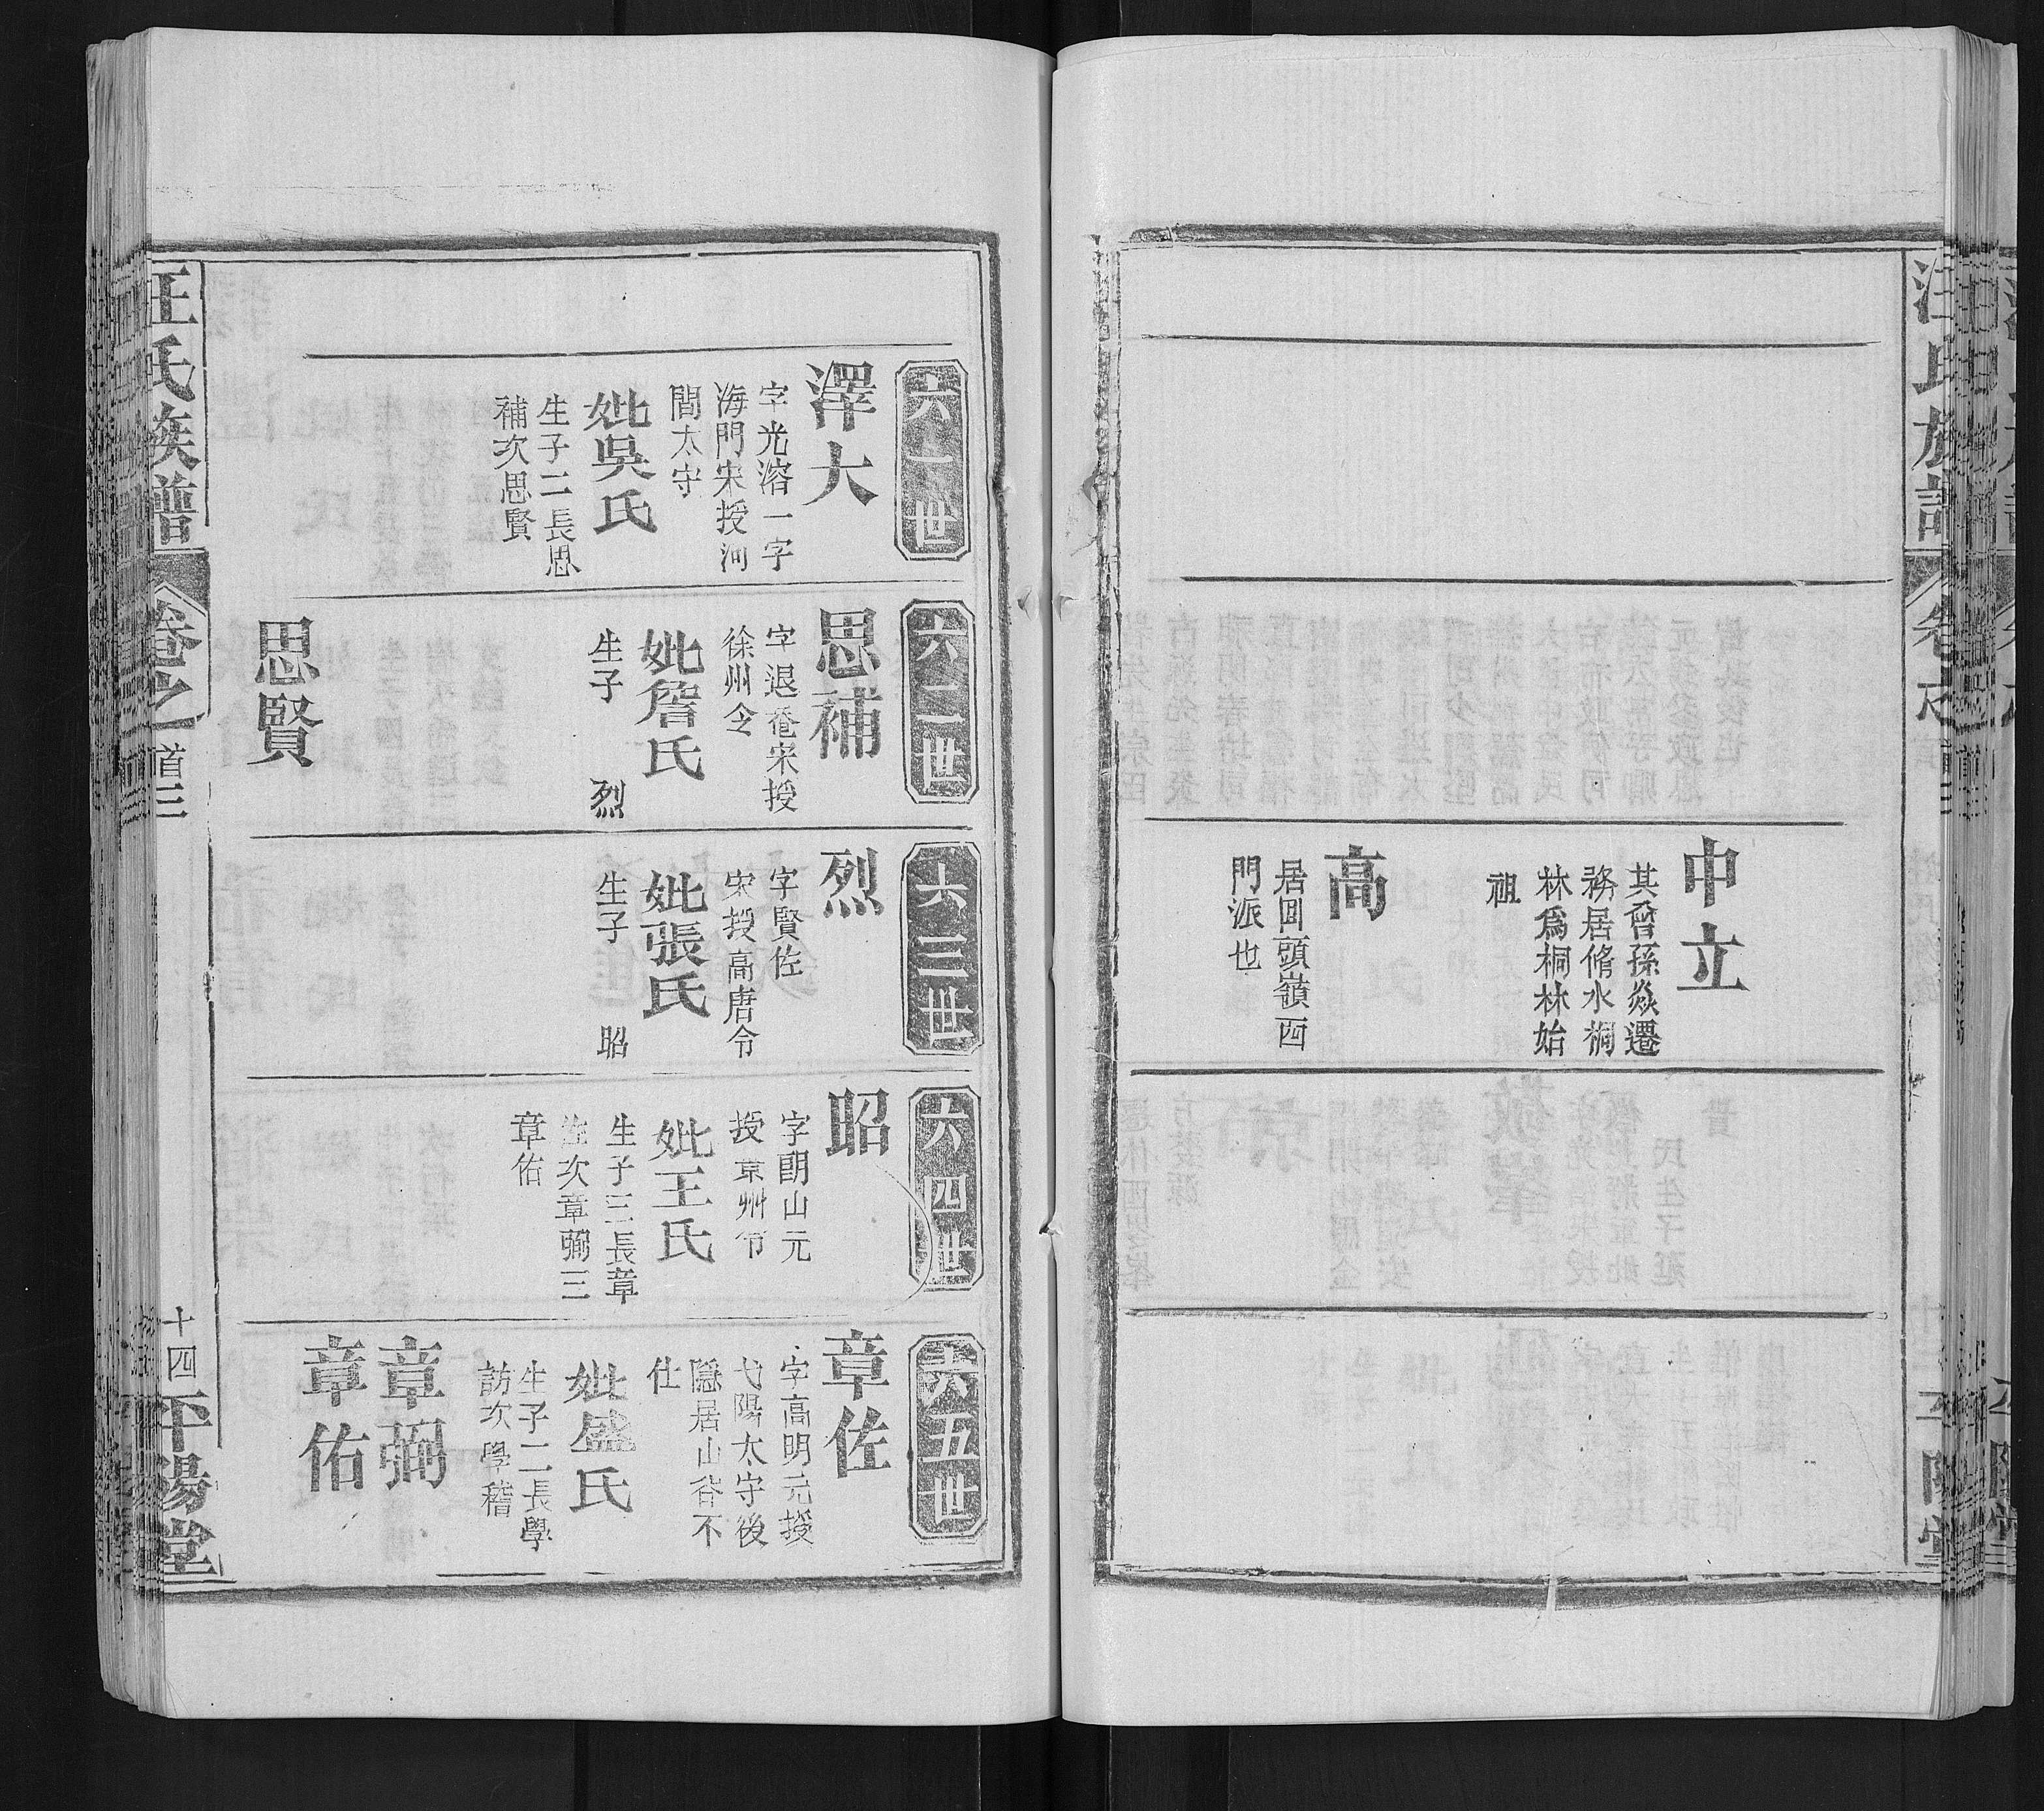 汪氏族譜
卷之
首三
平陽堂
中立
其曾孫焱遷
務居脩水桐
林爲桐林始
祖
高
居回頭嶺西
門派也
六一世
澤大
字光溶一字
海門宋授河
間太守
妣吳氏
生子二長思
補次思賢
六二世
思補
字退菴宋授
徐州令
妣詹氏
生子 烈
思賢
六三世
烈
字賢佐
宋授高唐令
妣張氏
生子 昭
六四世
昭
字朗山元
授景州令
妣王氏
生子三長章
佐次章弼三
章佑
六五世
章佐
字高明元授
弋陽太守後
隱居山谷不
仕
妣盛氏
生子二長學
訪次學稽
章弼
章佑
汪氏族譜
卷之一
首三
十四
平陽堂